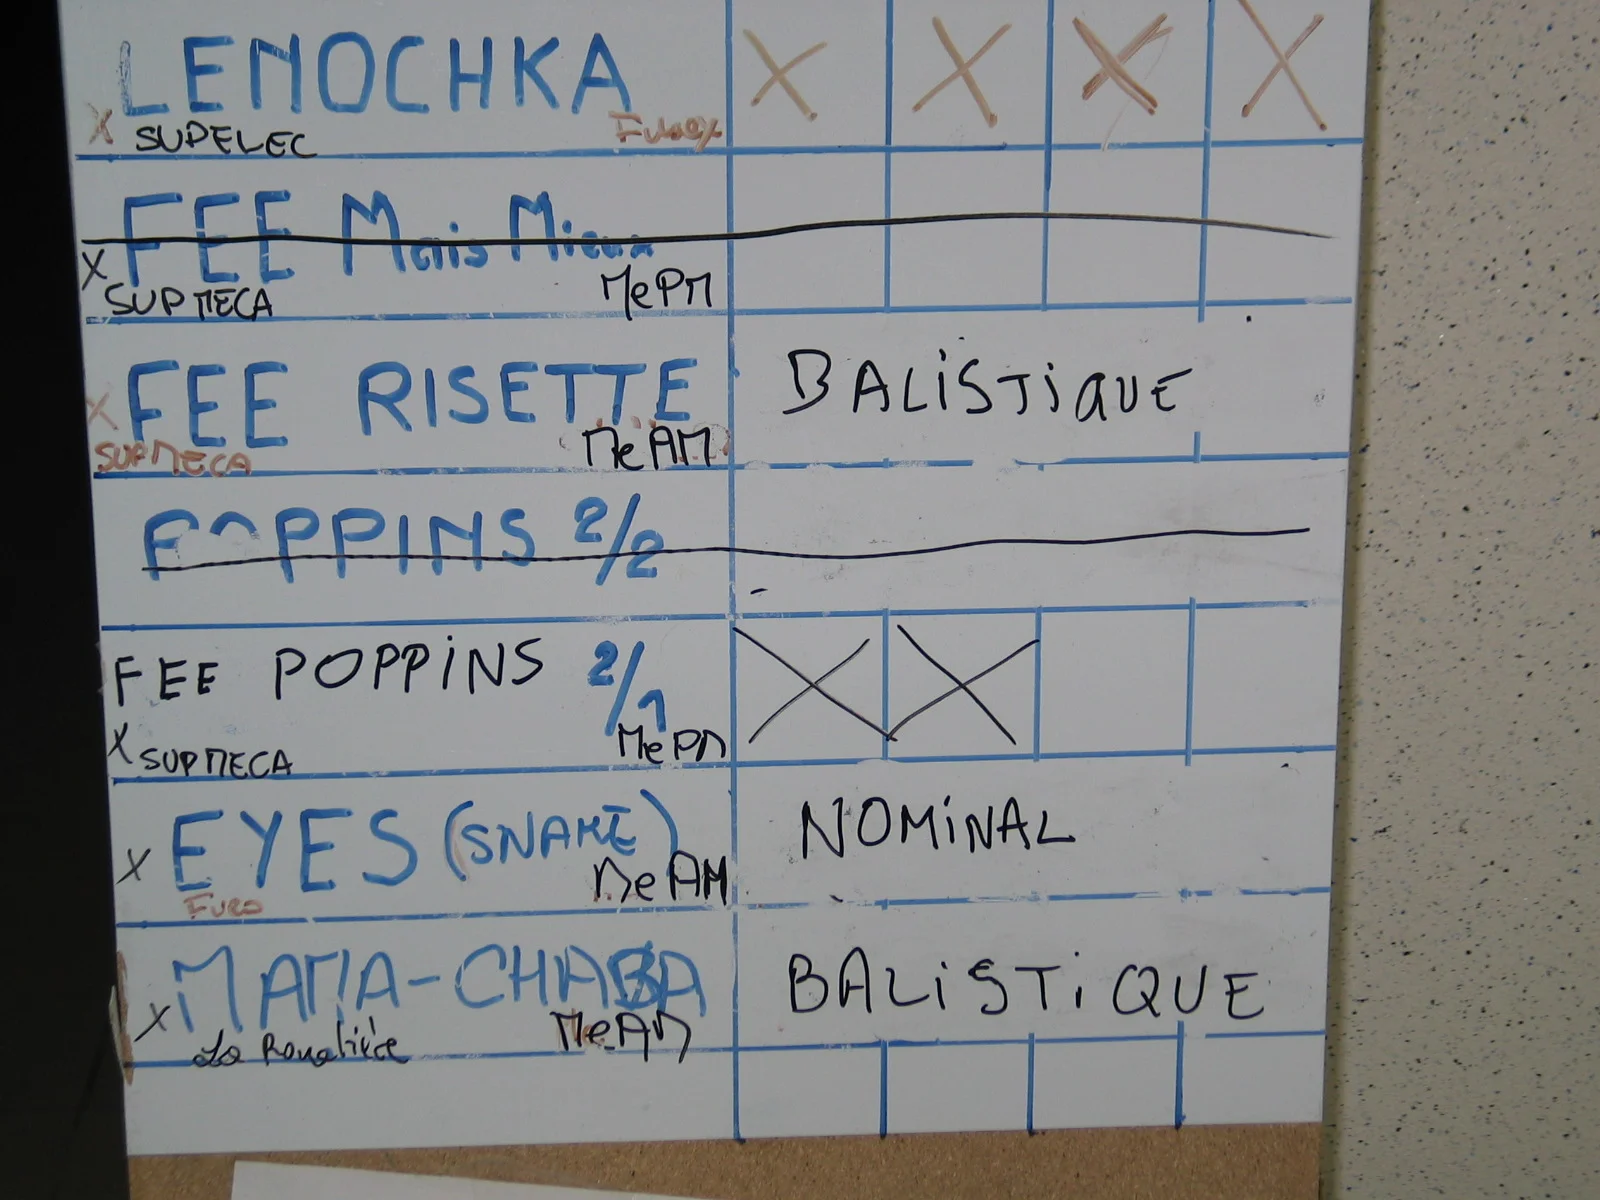 LENOCHKA
X SUPELEC
FEE Mais Mieux
X SUPMECA MePM
FEE RISETTE BALiSTiQUE
X SUPMECA MeAM
POPPINS 2/2
FEE POPPiNS 2/1
X SUPMECA MePM
X EYES (SNAKE) NOMiNAL
Furo MeAM
X MAMA-CHABA BALiSTiQUE
MeAM